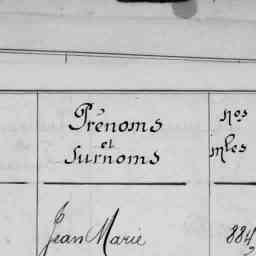 Prénoms
et
surnoms
Nos
mles
Jean Marie
884